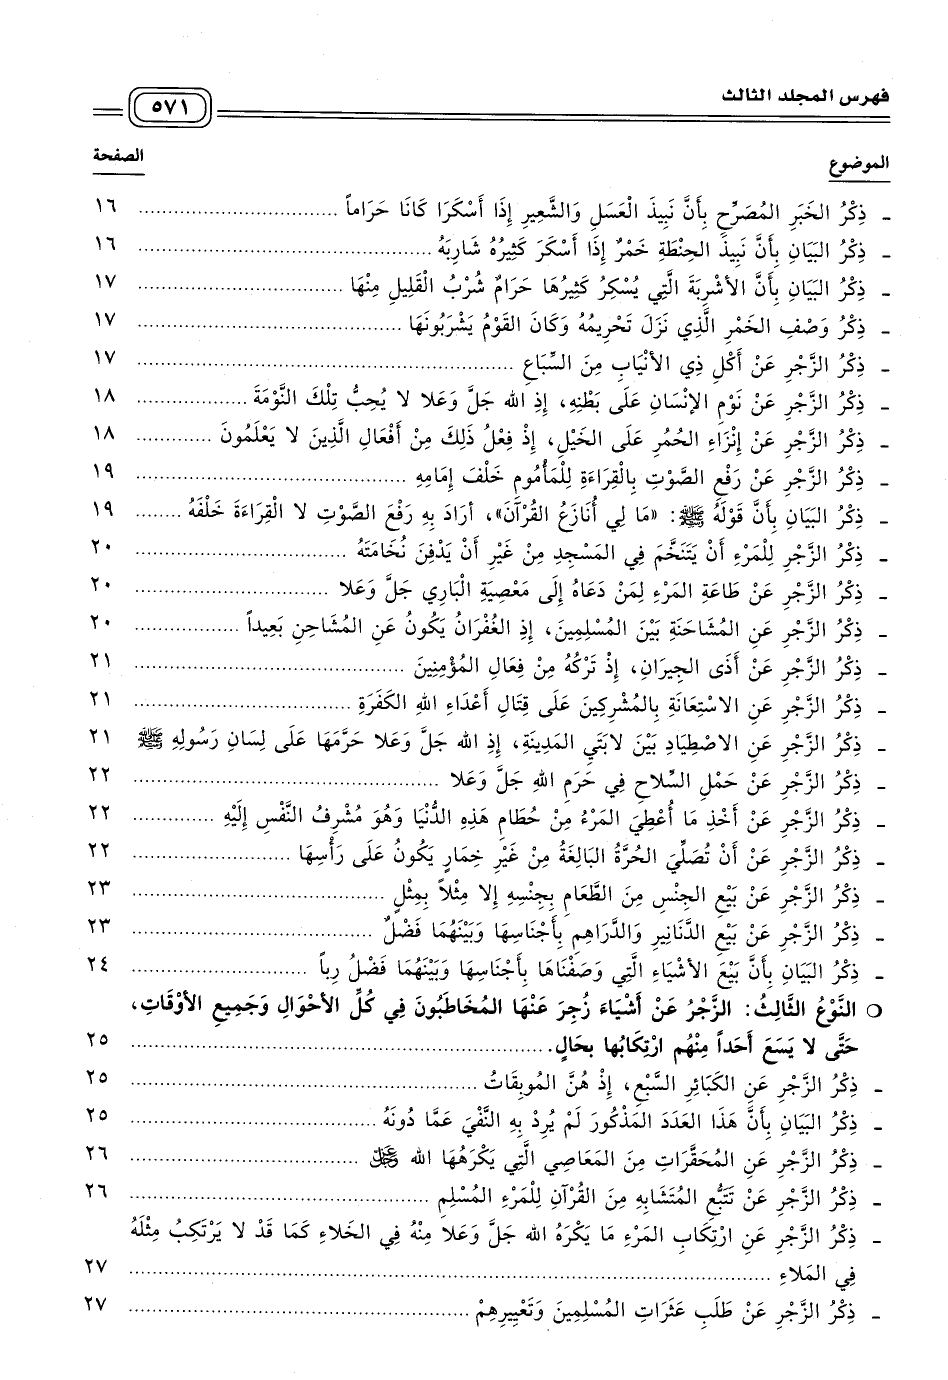 فهرس المجلد الثالث ٥٧١
الموضوع الصفحة
ـ ذِكْرُ الخَبَرِ المُصَرِّحِ بِأَنَّ نَبِيذَ الْعَسَلِ وَالشَّعِيرِ إِذَا أَسْكَرَا كَانَا حَرَاماً .............................. ١٦
ـ ذِكْرُ البَيَانِ بِأَنَّ نَبِيذَ الحِنْطَةِ خَمْرٌ إِذَا أَسْكَرَ كَثِيرُهُ شَارِبَهُ .............................. ١٦
ـ ذِكْرُ البَيَانِ بِأَنَّ الأَشْرِبَةَ الَّتِي يُسْكِرُ كَثِيرُهَا حَرَامٌ شُرْبُ الْقَلِيلِ مِنْهَا .............................. ١٧
ـ ذِكْرُ وَصْفِ الخَمْرِ الَّذِي نَزَلَ تَحْرِيمُهُ وَكَانَ القَوْمُ يَشْرَبُونَهَا .............................. ١٧
ـ ذِكْرُ الزَّجْرِ عَنْ أَكْلِ ذِي الأَنْيَابِ مِنَ السِّبَاعِ .............................. ١٧
ـ ذِكْرُ الزَّجْرِ عَنْ نَوْمِ الإِنْسَانِ عَلَى بَطْنِهِ، إِذِ الله جَلَّ وَعَلا لا يُحِبُّ تِلْكَ النَّوْمَةَ .................. ١٨
ـ ذِكْرُ الزَّجْرِ عَنْ إِنْزَاءِ الحُمُرِ عَلَى الخَيْلِ، إِذْ فِعْلُ ذَلِكَ مِنْ أَفْعَالِ الَّذِينَ لا يَعْلَمُونَ ............ ١٨
ـ ذِكْرُ الزَّجْرِ عَنْ رَفْعِ الصَّوْتِ بِالْقِرَاءَةِ لِلْمَأْمُومِ خَلْفَ إِمَامِهِ .............................. ١٩
ـ ذِكْرُ البَيَانِ بِأَنَّ قَوْلَهُ ﷺ: «مَا لِي أُنَازَعُ القُرْآنَ»، أرَادَ بِهِ رَفْعَ الصَّوْتِ لا القِرَاءَةَ خَلْفَهُ ........ ١٩
ـ ذِكْرُ الزَّجْرِ لِلْمَرْءِ أَنْ يَتَنَخَّمَ فِي المَسْجِدِ مِنْ غَيْرِ أَنْ يَدْفِنَ نُخَامَتَهُ .............................. ٢٠
ـ ذِكْرُ الزَّجْرِ عَنْ طَاعَةِ المَرْءِ لِمَنْ دَعَاهُ إِلَى مَعْصِيَةِ الْبَارِي جَلَّ وَعَلا .............................. ٢٠
ـ ذِكْرُ الزَّجْرِ عَنِ المُشَاحَنَةِ بَيْنَ المُسْلِمِينَ، إِذِ الغُفْرَانُ يَكُونُ عَنِ المُشَاحِنِ بَعِيداً ................. ٢٠
ـ ذِكْرُ الزَّجْرِ عَنْ أَذَى الجِيرَانِ، إِذْ تَرْكُهُ مِنْ فِعَالِ المُؤْمِنِينَ .............................. ٢١
ـ ذِكْرُ الزَّجْرِ عَنِ الاسْتِعَانَةِ بِالمُشْرِكِينَ عَلَى قِتَالِ أَعْدَاءِ اللهِ الكَفَرَةِ .............................. ٢١
ـ ذِكْرُ الزَّجْرِ عَنِ الاصْطِيَادِ بَيْنَ لابَتَيِ المَدِينَةِ، إِذِ الله جَلَّ وَعَلا حَرَّمَهَا عَلَى لِسَانِ رَسُولِهِ ﷺ ٢١
ـ ذِكْرُ الزَّجْرِ عَنْ حَمْلِ السِّلاحِ فِي حَرَمِ اللهِ جَلَّ وَعَلا .............................. ٢٢
ـ ذِكْرُ الزَّجْرِ عَنْ أَخْذِ مَا أُعْطِيَ المَرْءُ مِنْ حُطَامِ هَذِهِ الدُّنْيَا وَهُوَ مُشْرِفُ النَّفْسِ إِلَيْهِ ............. ٢٢
ـ ذِكْرُ الزَّجْرِ عَنْ أَنْ تُصَلِّيَ الحُرَّةُ البَالِغَةُ مِنْ غَيْرِ خِمَارٍ يَكُونُ عَلَى رَأْسِهَا ...................... ٢٢
ـ ذِكْرُ الزَّجْرِ عَنْ بَيْعِ الجِنْسِ مِنَ الطَّعَامِ بِجِنْسِهِ إِلا مِثْلاً بِمِثْلٍ .............................. ٢٣
ـ ذِكْرُ الزَّجْرِ عَنْ بَيْعِ الدَّنَانِيرِ وَالدَّرَاهِمِ بِأَجْنَاسِهَا وَبَيْنَهُمَا فَضْلٌ .............................. ٢٣
ـ ذِكْرُ البَيَانِ بِأَنَّ بَيْعَ الأَشْيَاءِ الَّتِي وَصَفْنَاهَا بِأَجْنَاسِهَا وَبَيْنَهُمَا فَضْلٌ رِباً ........................ ٢٤
○ النَّوْعُ الثَّالِثُ: الزَّجْرُ عَنْ أَشْيَاءَ زُجِرَ عَنْهَا المُخَاطَبُونَ فِي كُلِّ الأَحْوَالِ وَجَمِيعِ الأَوْقَاتِ،
حَتَّى لا يَسَعَ أَحَداً مِنْهُمُ ارْتِكَابُهَا بِحَالٍ. .............................. ٢٥
ـ ذِكْرُ الزَّجْرِ عَنِ الكَبَائِرِ السَّبْعِ، إِذْ هُنَّ المُوبِقَاتُ .............................. ٢٥
ـ ذِكْرُ البَيَانِ بِأَنَّ هَذَا العَدَدَ المَذْكُورَ لَمْ يُرِدْ بِهِ النَّفْيَ عَمَّا دُونَهُ .............................. ٢٥
ـ ذِكْرُ الزَّجْرِ عَنِ المُحَقَّرَاتِ مِنَ المَعَاصِي الَّتِي يَكْرَهُهَا الله ﷻ .............................. ٢٦
ـ ذِكْرُ الزَّجْرِ عَنْ تَتَبُّعِ المُتَشَابِهِ مِنَ القُرْآنِ لِلْمَرْءِ المُسْلِمِ .............................. ٢٦
ـ ذِكْرُ الزَّجْرِ عَنِ ارْتِكَابِ المَرْءِ مَا يَكْرَهُ الله جَلَّ وَعَلا مِنْهُ فِي الخَلاءِ كَمَا قَدْ لا يَرْتَكِبُ مِثْلَهُ
فِي المَلاءِ .............................. ٢٧
ـ ذِكْرُ الزَّجْرِ عَنْ طَلَبِ عَثَرَاتِ المُسْلِمِينَ وَتَعْيِيرِهِمْ .............................. ٢٧